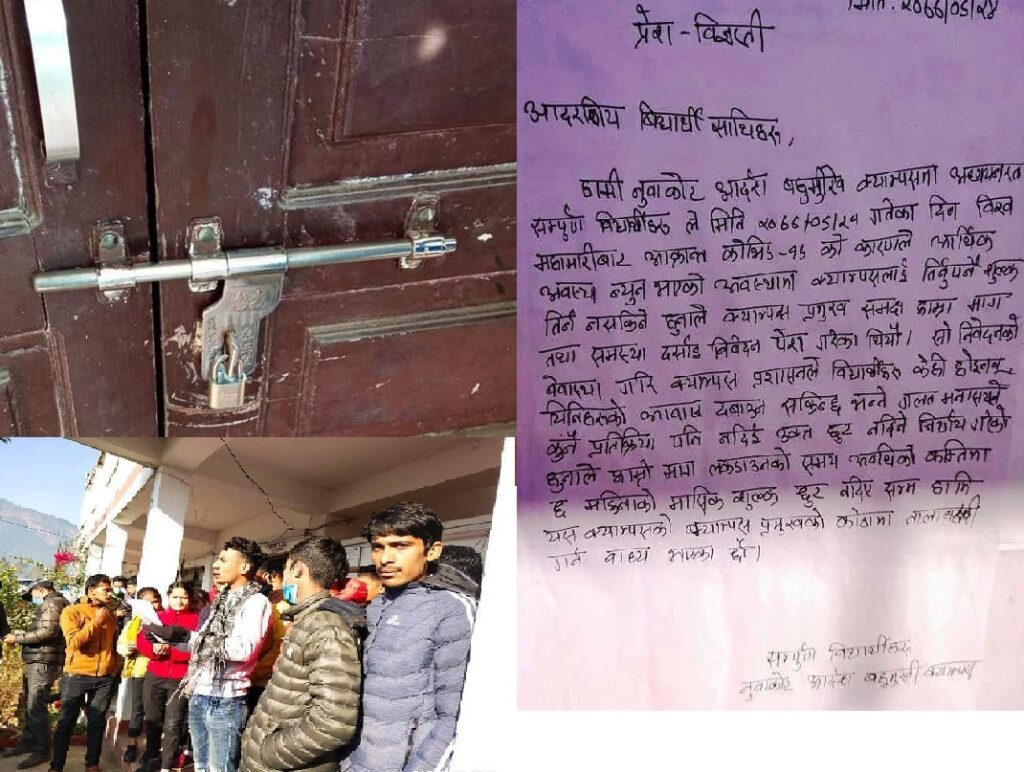 मिति: २०७७/०९/२४
प्रेश - विज्ञप्ती
आदरणिय विद्यार्थी साथिहरु,
हामी नुवाकोट आदर्श बहुमुखि क्याम्पसमा अध्ययनरत
सम्पुर्ण विद्यार्थीहरु ले मिति २०७७/०९/२१ गतेका दिन विश्व
महामारीबाट आक्रान्त कोभिड-१९ को कारणले आर्थिक
अवस्था न्युन भएको अवस्थामा क्याम्पसलाई तिर्नुपर्ने शुल्क
तिर्न नसकिने हुनाले क्याम्पस प्रमुख समक्ष हाम्रा माग
तथा समस्या दर्साइ निवेदन पेश गरेका थियौ। सो निवेदनको
वेवास्था गरि क्याम्पस प्रशासनले विद्यार्थीहरु केही होइनन्
यिनिहरुको आवाज दबाउन सकिन्छ भन्ने गलत मनसायले
कुनै प्रतिक्रिया पनि नदिई उक्त छुट नदिने निर्णय गरेको
हुनाले हाम्रो माग लकडाउनको समय अवधिको कम्तिमा
६ महिनाको मासिक शुल्क छुट नदिए सम्म हामि
यस क्याम्पसको क्याम्पस प्रमुखको कोठामा तालाबन्दी
गर्न वाध्य भएका छौ।
सम्पुर्ण विद्यार्थीहरु
नुवाकोट आदर्श बहुमुखी क्याम्पस